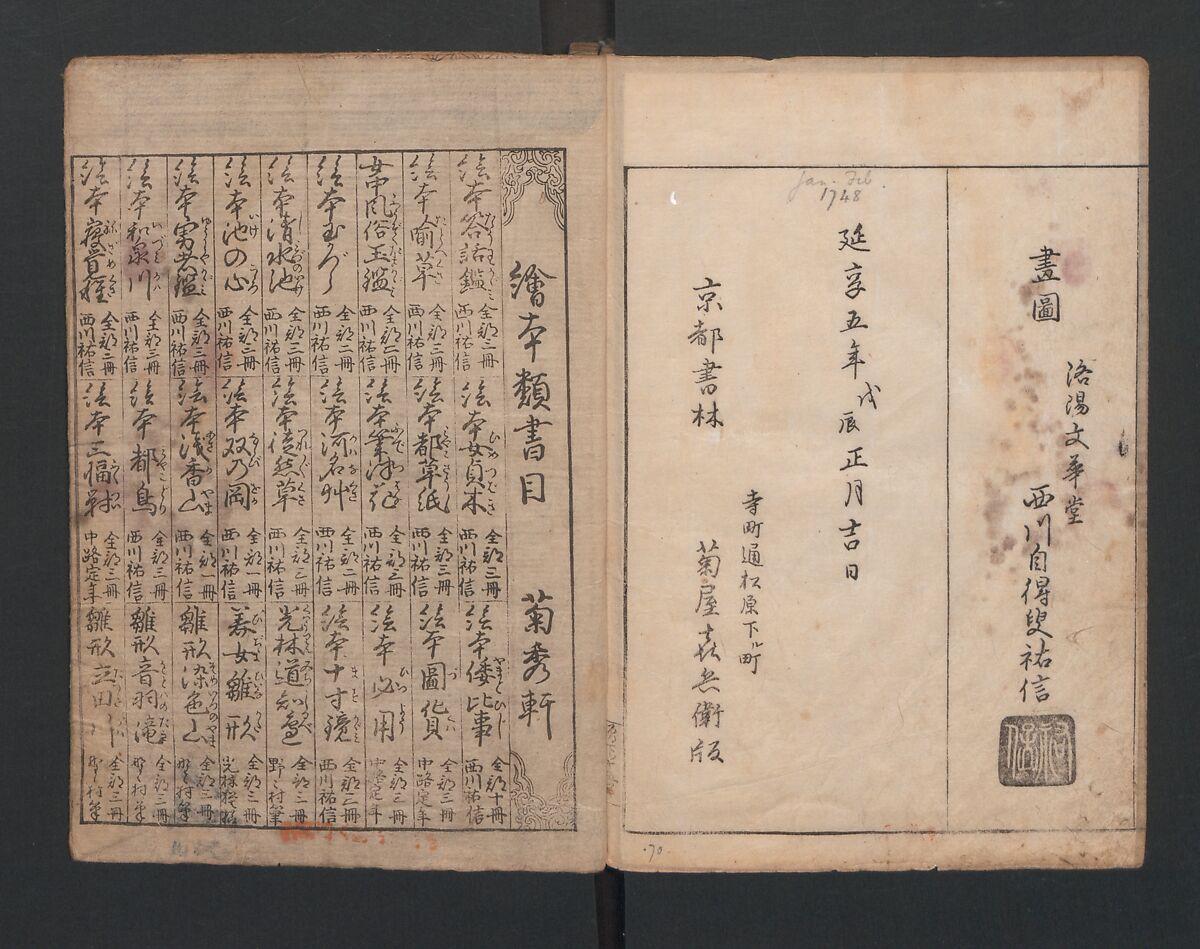 畫圖
洛陽文華堂
西川自得叟祐信
祐信
Jan. Feb
1748
延享五年戊辰正月吉日
京都書林
寺町通松原下ル町
菊屋喜兵衛版
70
繪本類書目 菊秀軒
絵本答話鑑 全部三冊 西川祐信
絵本喩草 全部三冊 西川祐信
女中風俗玉鑑 全部二冊 西川祐信
絵本玉かづら 全部二冊 西川祐信
絵本清水池 全部三冊 西川祐信
絵本池の心 全部三冊 西川祐信
絵本勇武鑑 全部三冊 西川祐信
絵本和泉川 全部三冊 西川祐信
絵本寝覚種 全部二冊 西川祐信
絵本女貞木 全部三冊 西川祐信
絵本都草紙 全部三冊 西川祐信
絵本筆津花 全部三冊 西川祐信
絵本河名草 全部二冊 西川祐信
絵本徒然草 全部三冊 西川祐信
絵本双乃岡 全部一冊 西川祐信
絵本浅香山 全部一冊 西川祐信
絵本都鳥 全部三冊 西川祐信
絵本三幅対 全部三冊 中路定年
絵本倭比事 全部十冊 西川祐信
絵本圖化貝 全部三冊 中路定年
絵本必用 全部三冊 中路定年
絵本十寸鏡 全部三冊 西川祐信
光林道知邊 全部三冊 野々村筆
美女雛形 全部三冊
雛形染色山 全部三冊 野々村筆
雛形音羽滝 全部三冊 野々村筆
雛形立田川 全部三冊 野々村筆